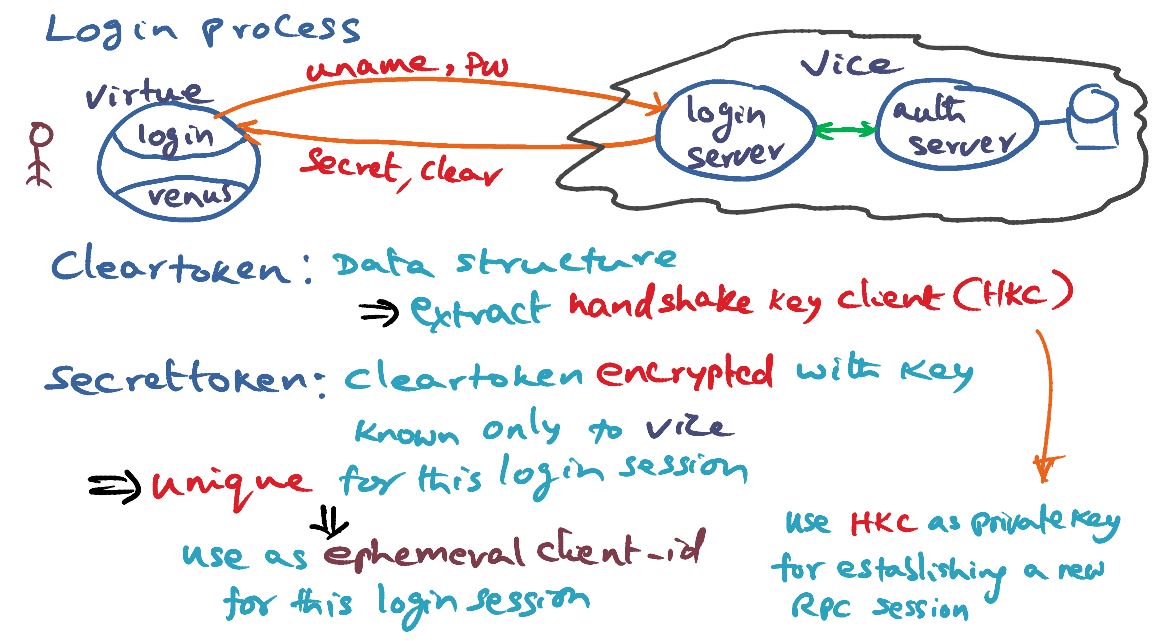 Login process
uname, pw
Vice
Virtue
login
login server
auth server
secret, clear
venus
Cleartoken: Data structure
⇒ extract handshake key client (HKC)
Secrettoken: cleartoken encrypted with key
known only to vice
⇒ unique for this login session
⇓
use as ephemeral client-id
for this login session
use HKC as private key
for establishing a new
RPC session